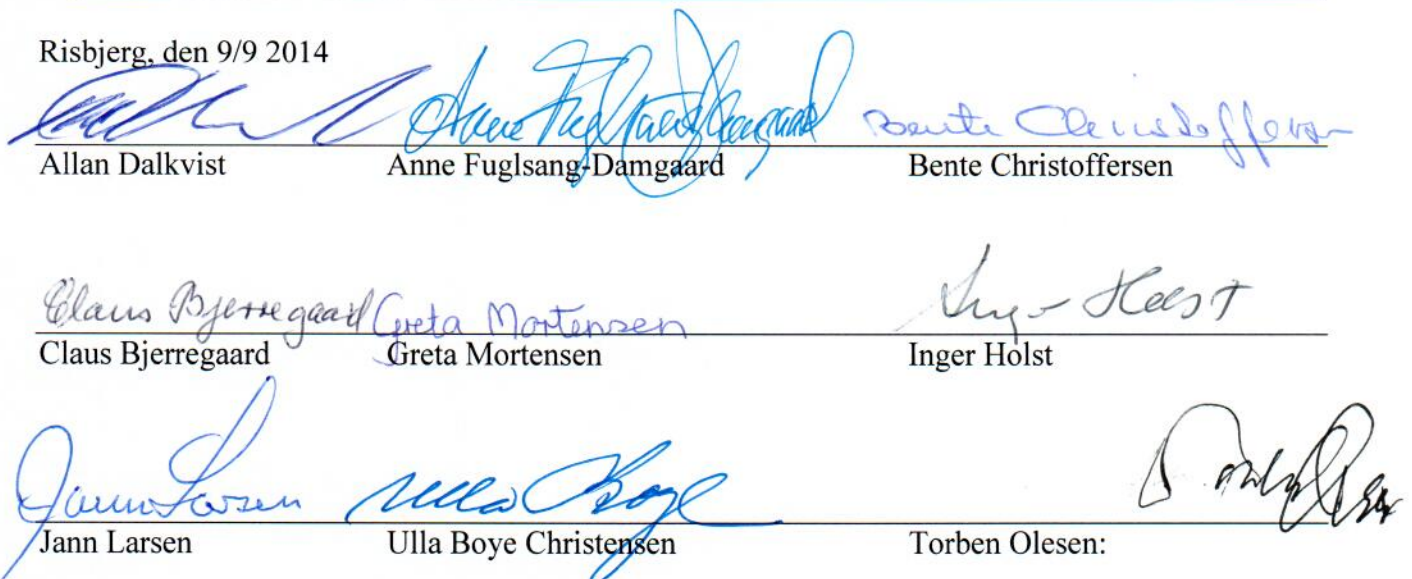 Risbjerg, den 9/9 2014
Anne Fuglsang Damgaard Bente Christoffersen
Allan Dalkvist Anne Fuglsang-Damgaard Bente Christoffersen
Claus Bjerregaard Greta Mortensen Inger Holst
Claus Bjerregaard Greta Mortensen Inger Holst
Jann Larsen Ulla Boye
Jann Larsen Ulla Boye Christensen Torben Olesen: